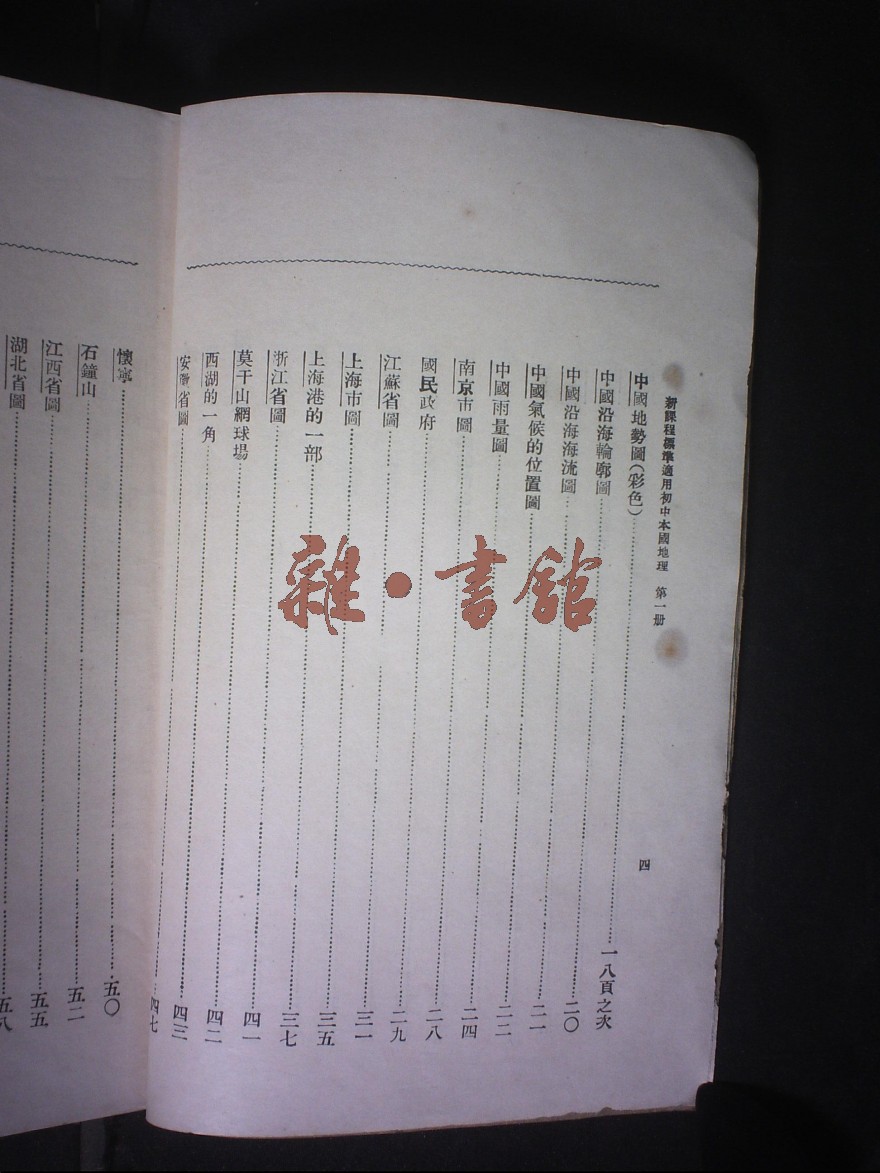 新課程標準適用初中本國地理 第一册 四
中國地勢圖(彩色)……一八頁之次
中國沿海輪廓圖……二〇
中國沿海海流圖……二一
中國氣候的位置圖……二二
中國雨量圖……二四
南京市圖……二八
國民政府……二九
江蘇省圖……三一
上海市圖……三五
上海港的一部……三七
浙江省圖……四一
莫干山網球場……四二
西湖的一角……四三
安徽省圖……四七
懷寧……五〇
石鐘山……五二
江西省圖……五五
湖北省圖……五八
雜·書館